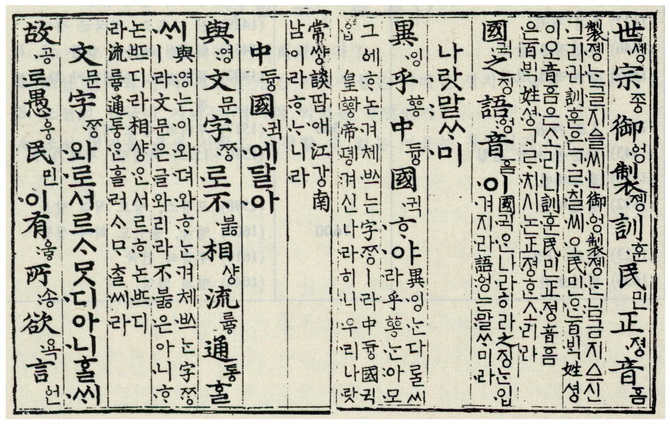 世솅宗종御ᅌᅥᆼ製졩訓훈民민正져ᇰ音ᅙᅳᆷ
製졩는글지ᅀᅳᆯ씨니御ᅌᅥᆼ製졩는님금지ᅀᅳ샨
그리라訓훈은ᄀᆞᄅᆞ칠씨오民민ᄋᆞᆫ百ᄇᆡᆨ姓셔ᇰ
이오音ᅙᅳᆷ은소리니訓훈民민正져ᇰ音ᅙᅳᆷ
은百ᄇᆡᆨ姓셔ᇰᄀᆞᄅᆞ치시논正져ᇰᄒᆞᆫ소리라
國귁之징語ᅌᅥᆼ音ᅙᅳᆷ이國귁ᄋᆞᆫ나라히라之징ᄂᆞᆫ입
겨지라語ᅌᅥᆼ는말ᄊᆞ미라
나랏말ᄊᆞ미
異잉乎ᅘᅩᆼ中듀ᇰ國귁ᄒᆞ야異잉ᄂᆞᆫ다ᄅᆞᆯ씨
라乎ᅘᅩᆼᄂᆞᆫ아모
그ᅌᅦᄒᆞ논겨체ᄡᅳ는字ᄍᆞᆼㅣ라中듀ᇰ國귁
ᄋᆞᆫ皇ᅘᅪᇰ帝뎽겨신나라히니우리나랏
常쌰ᇰ談땀애江가ᇰ南
남이라ᄒᆞᄂᆞ니라
中듀ᇰ國귁에달아
與영文문字ᄍᆞᆼ로不부ᇙ相샤ᇰ流류ᇢ通토ᇰᄒᆞᆯᄊᆡ
與영는이와뎌와ᄒᆞᄂᆞᆫ겨체ᄡᅳ는字ᄍᆞᆼ
ㅣ라文문은글와리라不부ᇙ은아니ᄒᆞ
논ᄠᅳ디라相샤ᇰᄋᆞᆫ서르ᄒᆞ논ᄠᅳ디
라流류ᇢ通토ᇰᄋᆞᆫ흘러ᄉᆞᄆᆞᄎᆞᆯ씨라
文문字ᄍᆞᆼ와로서르ᄉᆞᄆᆞᆺ디아니ᄒᆞᆯᄊᆡ
故공로愚ᅌᅮᆼ民민이有우ᇢ所송欲욕言언